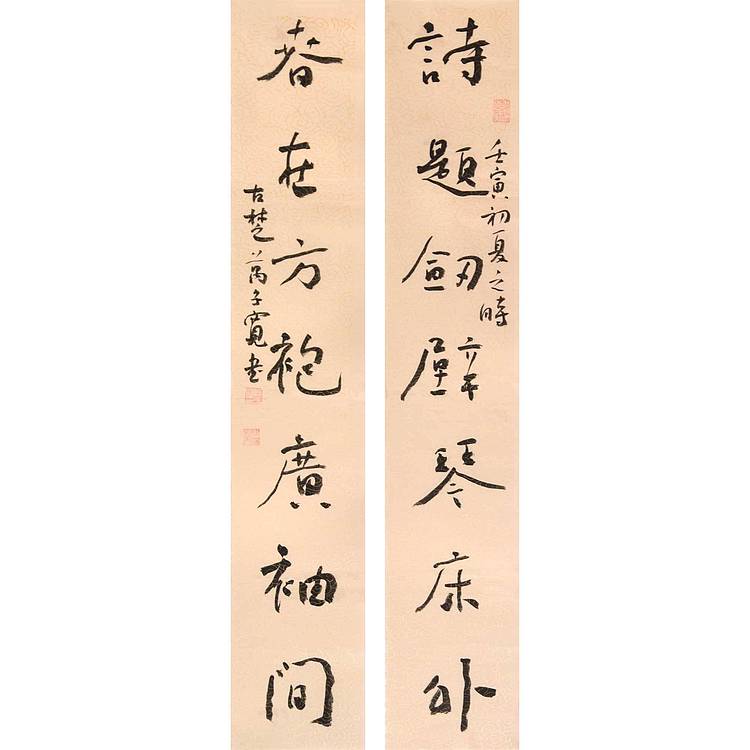 詩題劒壁琴床外
壬寅初夏之時
春在方袍廣袖間
古楚萬子寬書